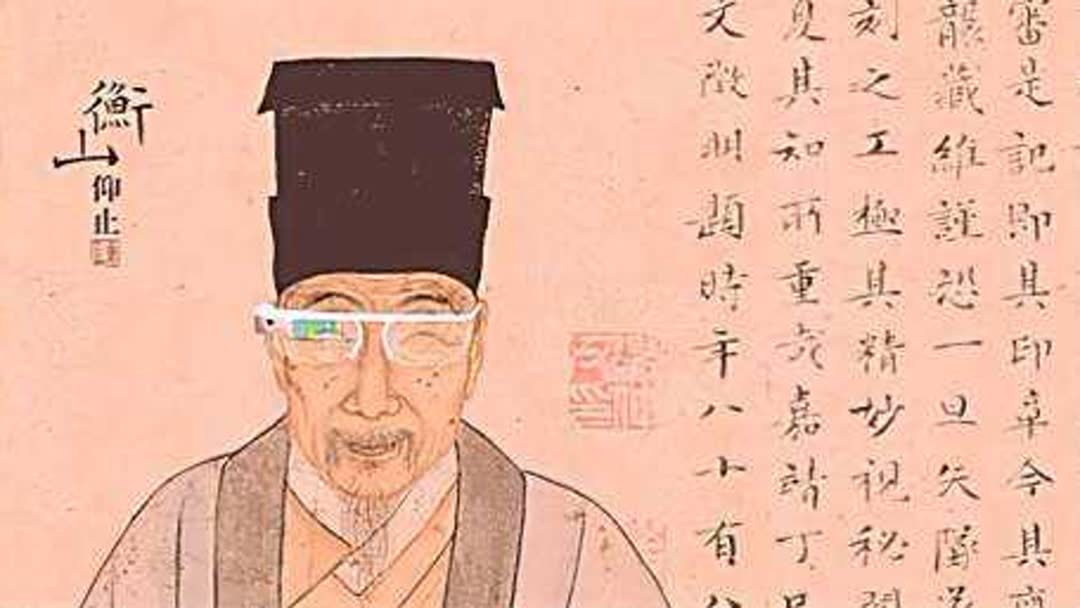 審是記即具印卒今具
襲藏維謹恐一旦失墜
刻之工極其精妙視秘閣
其知所重哉嘉靖丁巳
文徵明題時年八十有八
衡山
仰止